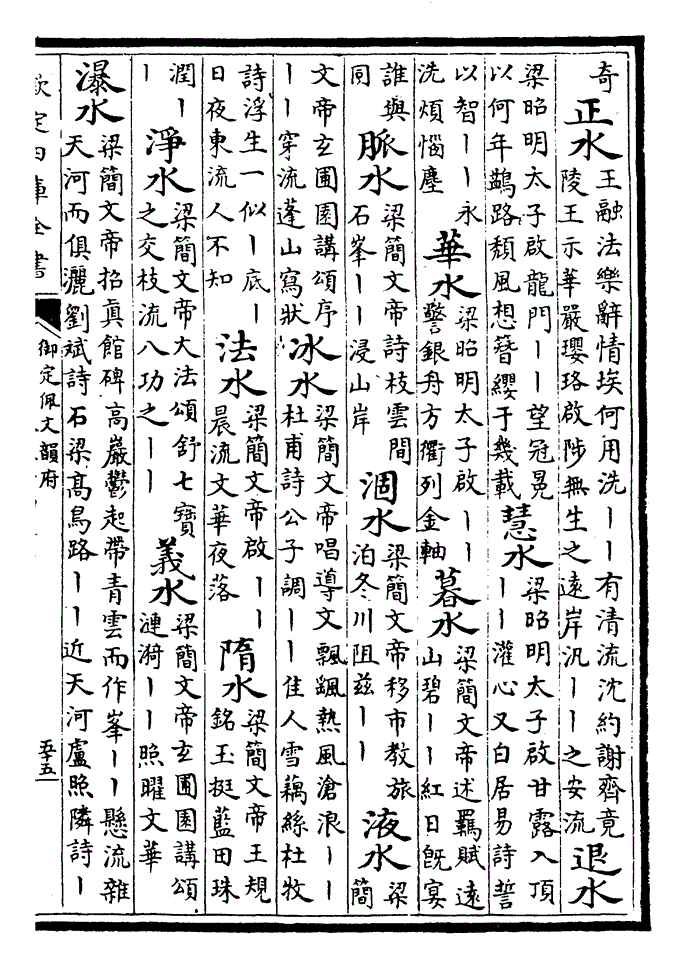 奇 正水 王融法樂辭情埃何用洗丨丨有清流沈約謝齊竟陵王示華嚴瓔珞啟陟無生之遠岸汎丨丨之安流 退水
梁昭明太子啟龍門丨丨望冠冕以何年鷁路頽風想簪纓于幾載 慧水 梁昭明太子啟甘露入頂丨丨灌心又白居易詩誓
以智丨丨永洗煩惱塵 華水 梁昭明太子啟丨丨警銀舟方衢列金軸 暮水 梁簡文帝述羈賦遠山碧丨丨紅日旣宴
誰與同 脈水 梁簡文帝詩枝雲間石峯丨丨浸山岸 涸水 梁簡文帝移市教旅泊冬川阻兹丨丨 液水 梁簡
文帝玄圃園講頌序丨丨穿流蓬山寫狀 冰水 梁簡文帝唱導文飄颻熱風滄浪丨丨杜甫詩公子調丨丨佳人雪藕絲杜牧
詩浮生一似丨底丨日夜東流人不知 法水 梁簡文帝啟丨丨晨流文華夜落 隋水 梁簡文帝王規銘玉挺藍田珠
潤丨丨 淨水 梁簡文帝大法頌舒七寶之交枝流八功之丨丨 義水 梁簡文帝玄圃園講頌漣漪丨丨照曜文華
瀑水 梁簡文帝招眞館碑高巖鬱起帶青雲而作峯丨丨懸流雜天河而俱灑劉斌詩石梁高鳥路丨丨近天河盧照隣詩丨
欽定四庫全書 御定佩文韻府 五十五